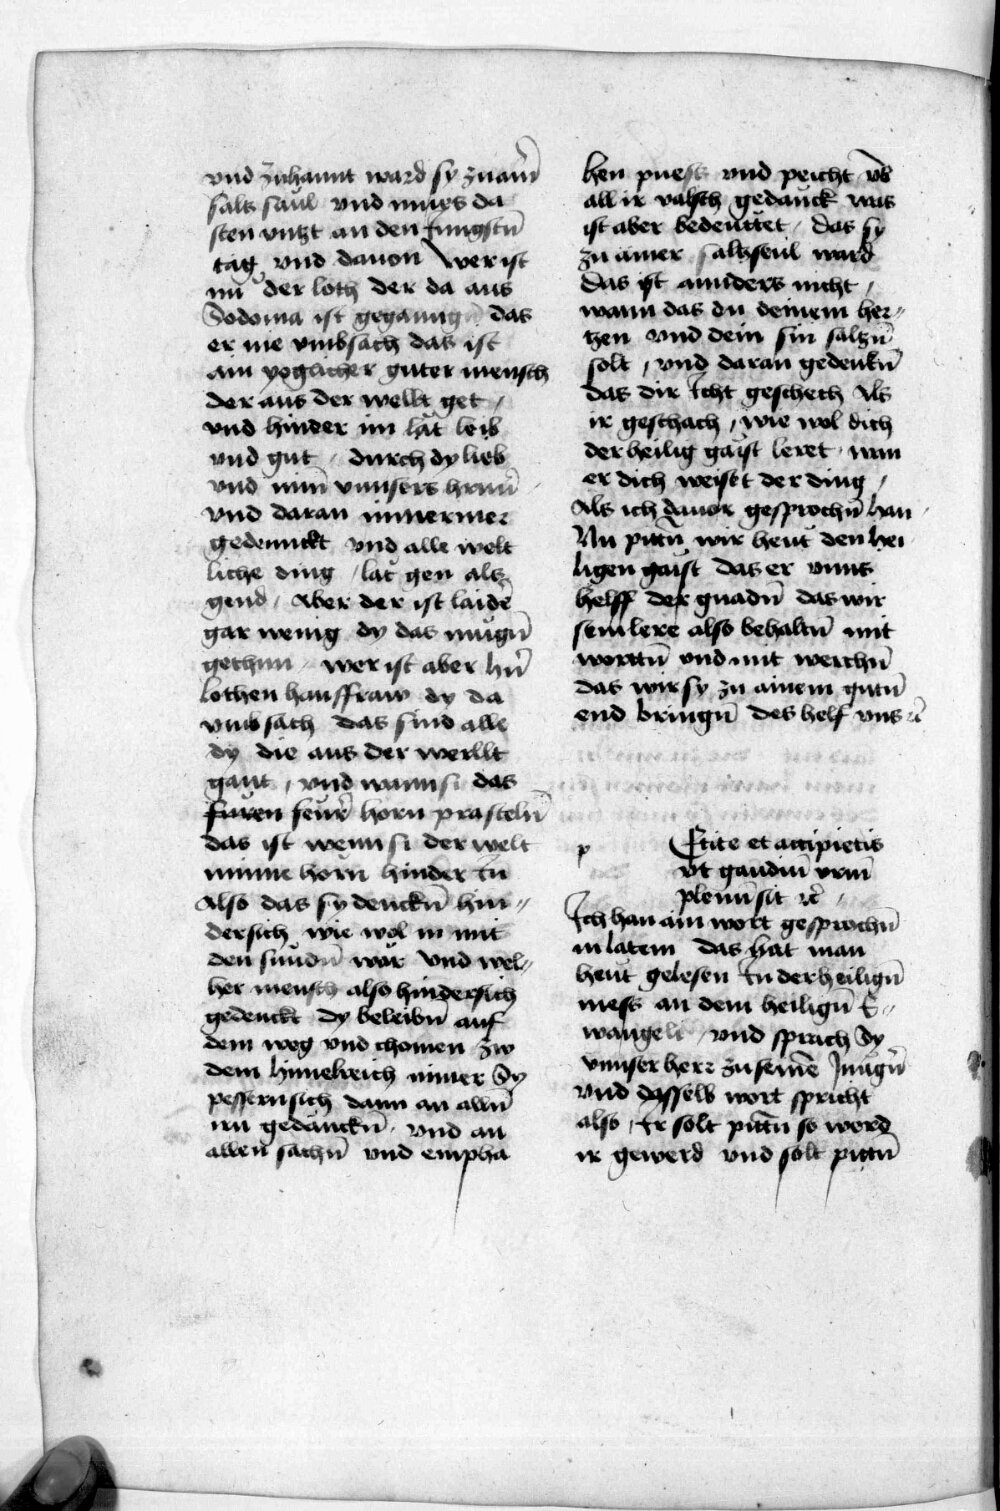 vnd zuhannt ward sy zu aiñ
saltz saul vnd mues da
sten vntzt an den Jungstñ
tag vnd dauon Wer ist
nu der loth der da aus
Sodoma ist geganngñ das
er nie vmbsach das ist
ain yeglicher guter mensch
der aus der wellt get /
vnd hinder im lät leib
vnd gut / durch dy lieb
vnd min̄ vnnsers herrñ
vnd daran immermer
gedennckt vnd alle welt
liche ding / lät gen als
gend / Aber der ist laide
gar wenig dy das mugñ
gethun / wer ist aber hñ
lothen hausfraw dy da
vmbsach das sind alle
dy die aus der werllt
gant / vnd wann si das
feur horn prastelñ
das ist wenn si der welt
minne horn hinder In
Also das sy denckñ hin=
dersich wie wol in mit
den sundñ wär vnd wel=
her mensch also hindersich
gedenckt dy beleibñ auf
dem weg vnd chomen zw
dem himelreich nimer Sy
pessern sich dann an allñ
irn gedänckñ vnd an
allen sachñ vnd empha
hen puess vnd peicht vb̄
all ir valsch gedanck was
ist aber bedeuttet / das sy
zu ainer saltzseul ward
Das ist annders nicht /
wann das du deinem her=
tzen vnd dein sin saltzñ
solt / vnd daran gedenckñ
das dir Icht geschech Als
ir geschach / wie wol dich
der heilig gaist leret / vnn
er dich weiset der ding /
Als ich dauor gesprochñ han
Nu pittñ wir heut den hei
ligen gaist das er vnns
helff der gnadñ das wir
sein lere also behaltñ mit
worttñ vnd mit werchñ
das wir sy zu ainem gutñ
end bringñ des helf vns ꝛc̄
p Etite et accipietis
vt gaudiū vrm̄
plenū sit ꝛc̄
Ich han ain wort gesprochñ
in latein das hat man
heut gelesen In der heiligñ
mess an dem heiligñ E=
wangeli / vnd sprach Sy
vnnser herr zu seinē Jungñ
vnd dasselb wort spricht
also / Ir solt pittñ so werd
ir gewerd vnd solt pittñ